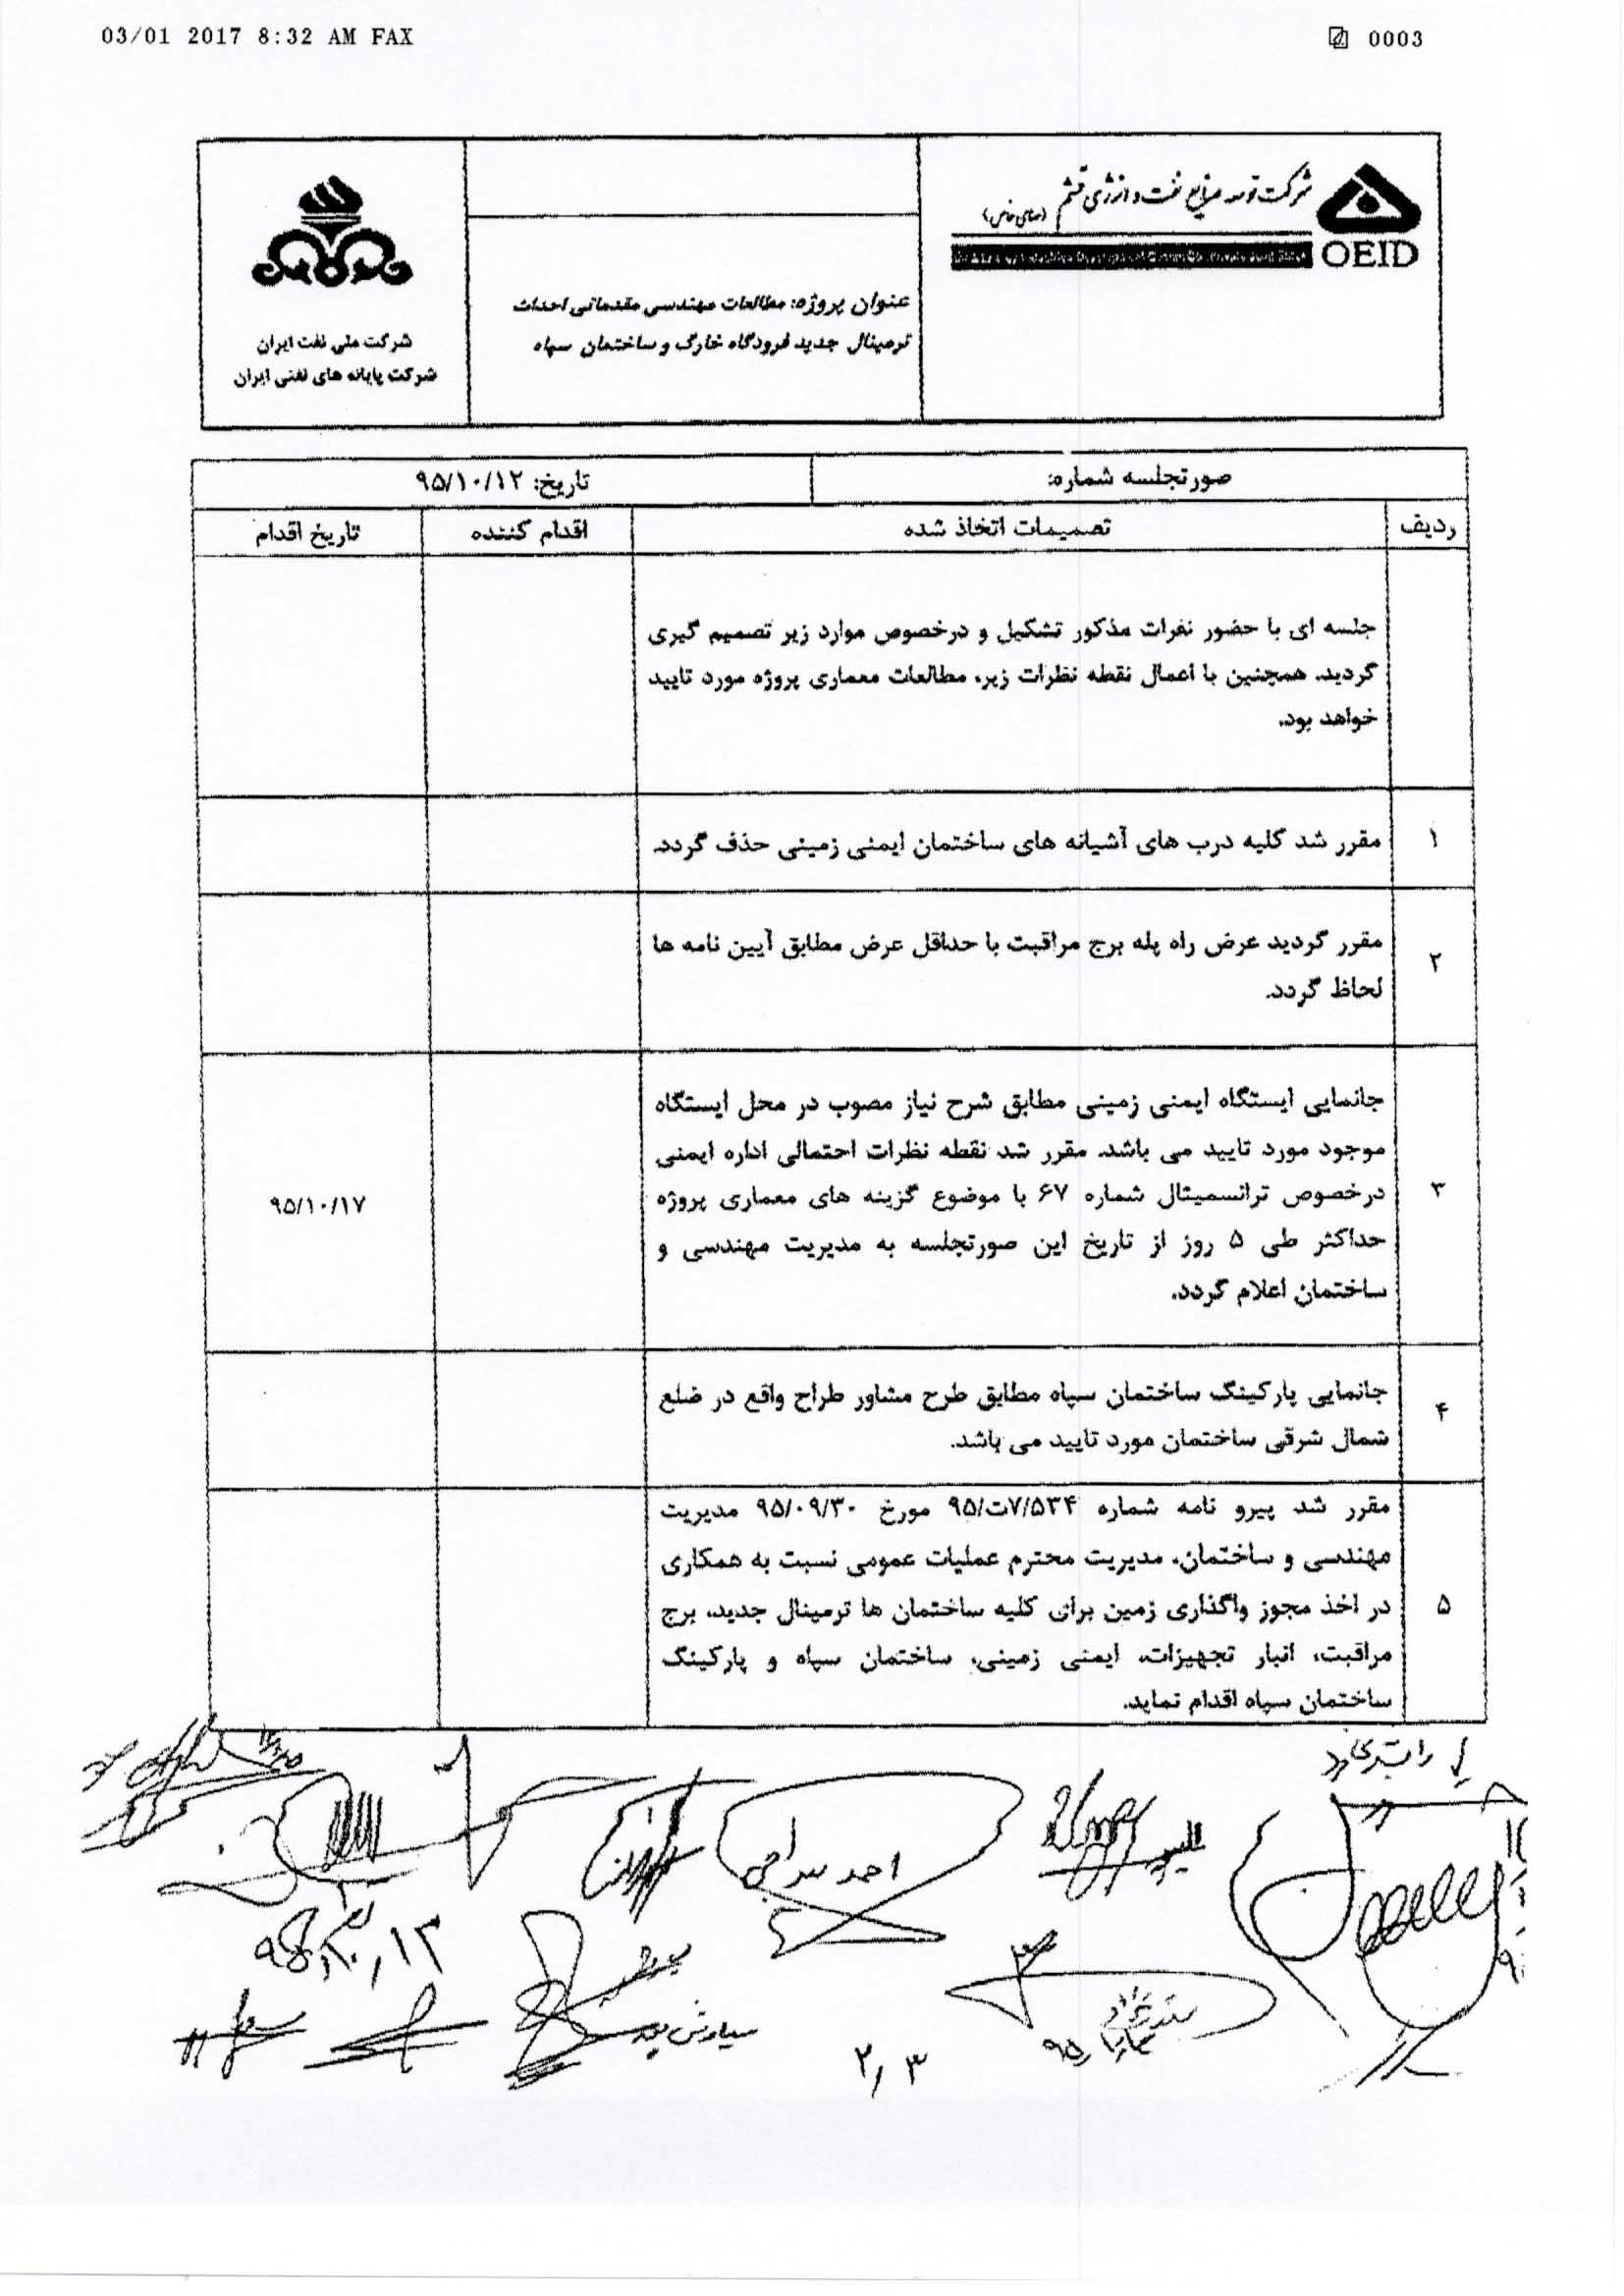 03/01 2017 8:32 AM FAX
0003
شرکت توسعه صنایع نفت و انرژی قشم
(سهامی خاص)
OEID
عنوان پروژه: مطالعات مهندسی مقدماتی احداث
ترمینال جدید فرودگاه خارگ و ساختمان سپاه
شرکت ملی نفت ایران
شرکت پایانه های نفتی ایران
صورتجلسه شماره:
تاریخ: ۹۵/۱۰/۱۲
ردیف
تصمیمات اتخاذ شده
اقدام کننده
تاریخ اقدام
جلسه ای با حضور نفرات مذکور تشکیل و درخصوص موارد زیر تصمیم گیری
گردید. همچنین با اعمال نقطه نظرات زیر، مطالعات معماری پروژه مورد تایید
خواهد بود.
۱
مقرر شد کلیه درب های آشیانه های ساختمان ایمنی زمینی حذف گردد.
۲
مقرر گردید عرض راه پله برج مراقبت با حداقل عرض مطابق آیین نامه ها
لحاظ گردد.
۳
جانمایی ایستگاه ایمنی زمینی مطابق شرح نیاز مصوب در محل ایستگاه
موجود مورد تایید می باشد. مقرر شد نقطه نظرات احتمالی اداره ایمنی
درخصوص ترانسمیتال شماره ۶۷ با موضوع گزینه های معماری پروژه
حداکثر طی ۵ روز از تاریخ این صورتجلسه به مدیریت مهندسی و
ساختمان اعلام گردد.
۹۵/۱۰/۱۷
۴
جانمایی پارکینگ ساختمان سپاه مطابق طرح مشاور طراح واقع در ضلع
شمال شرقی ساختمان مورد تایید می باشد.
۵
مقرر شد پیرو نامه شماره ۹۵/ت۷/۵۳۴ مورخ ۹۵/۰۹/۳۰ مدیریت
مهندسی و ساختمان، مدیریت محترم عملیات عمومی نسبت به همکاری
در اخذ مجوز واگذاری زمین برای کلیه ساختمان ها ترمینال جدید، برج
مراقبت، انبار تجهیزات، ایمنی زمینی، ساختمان سپاه و پارکینگ
ساختمان سپاه اقدام نماید.
احمد سراجی
۲,۳